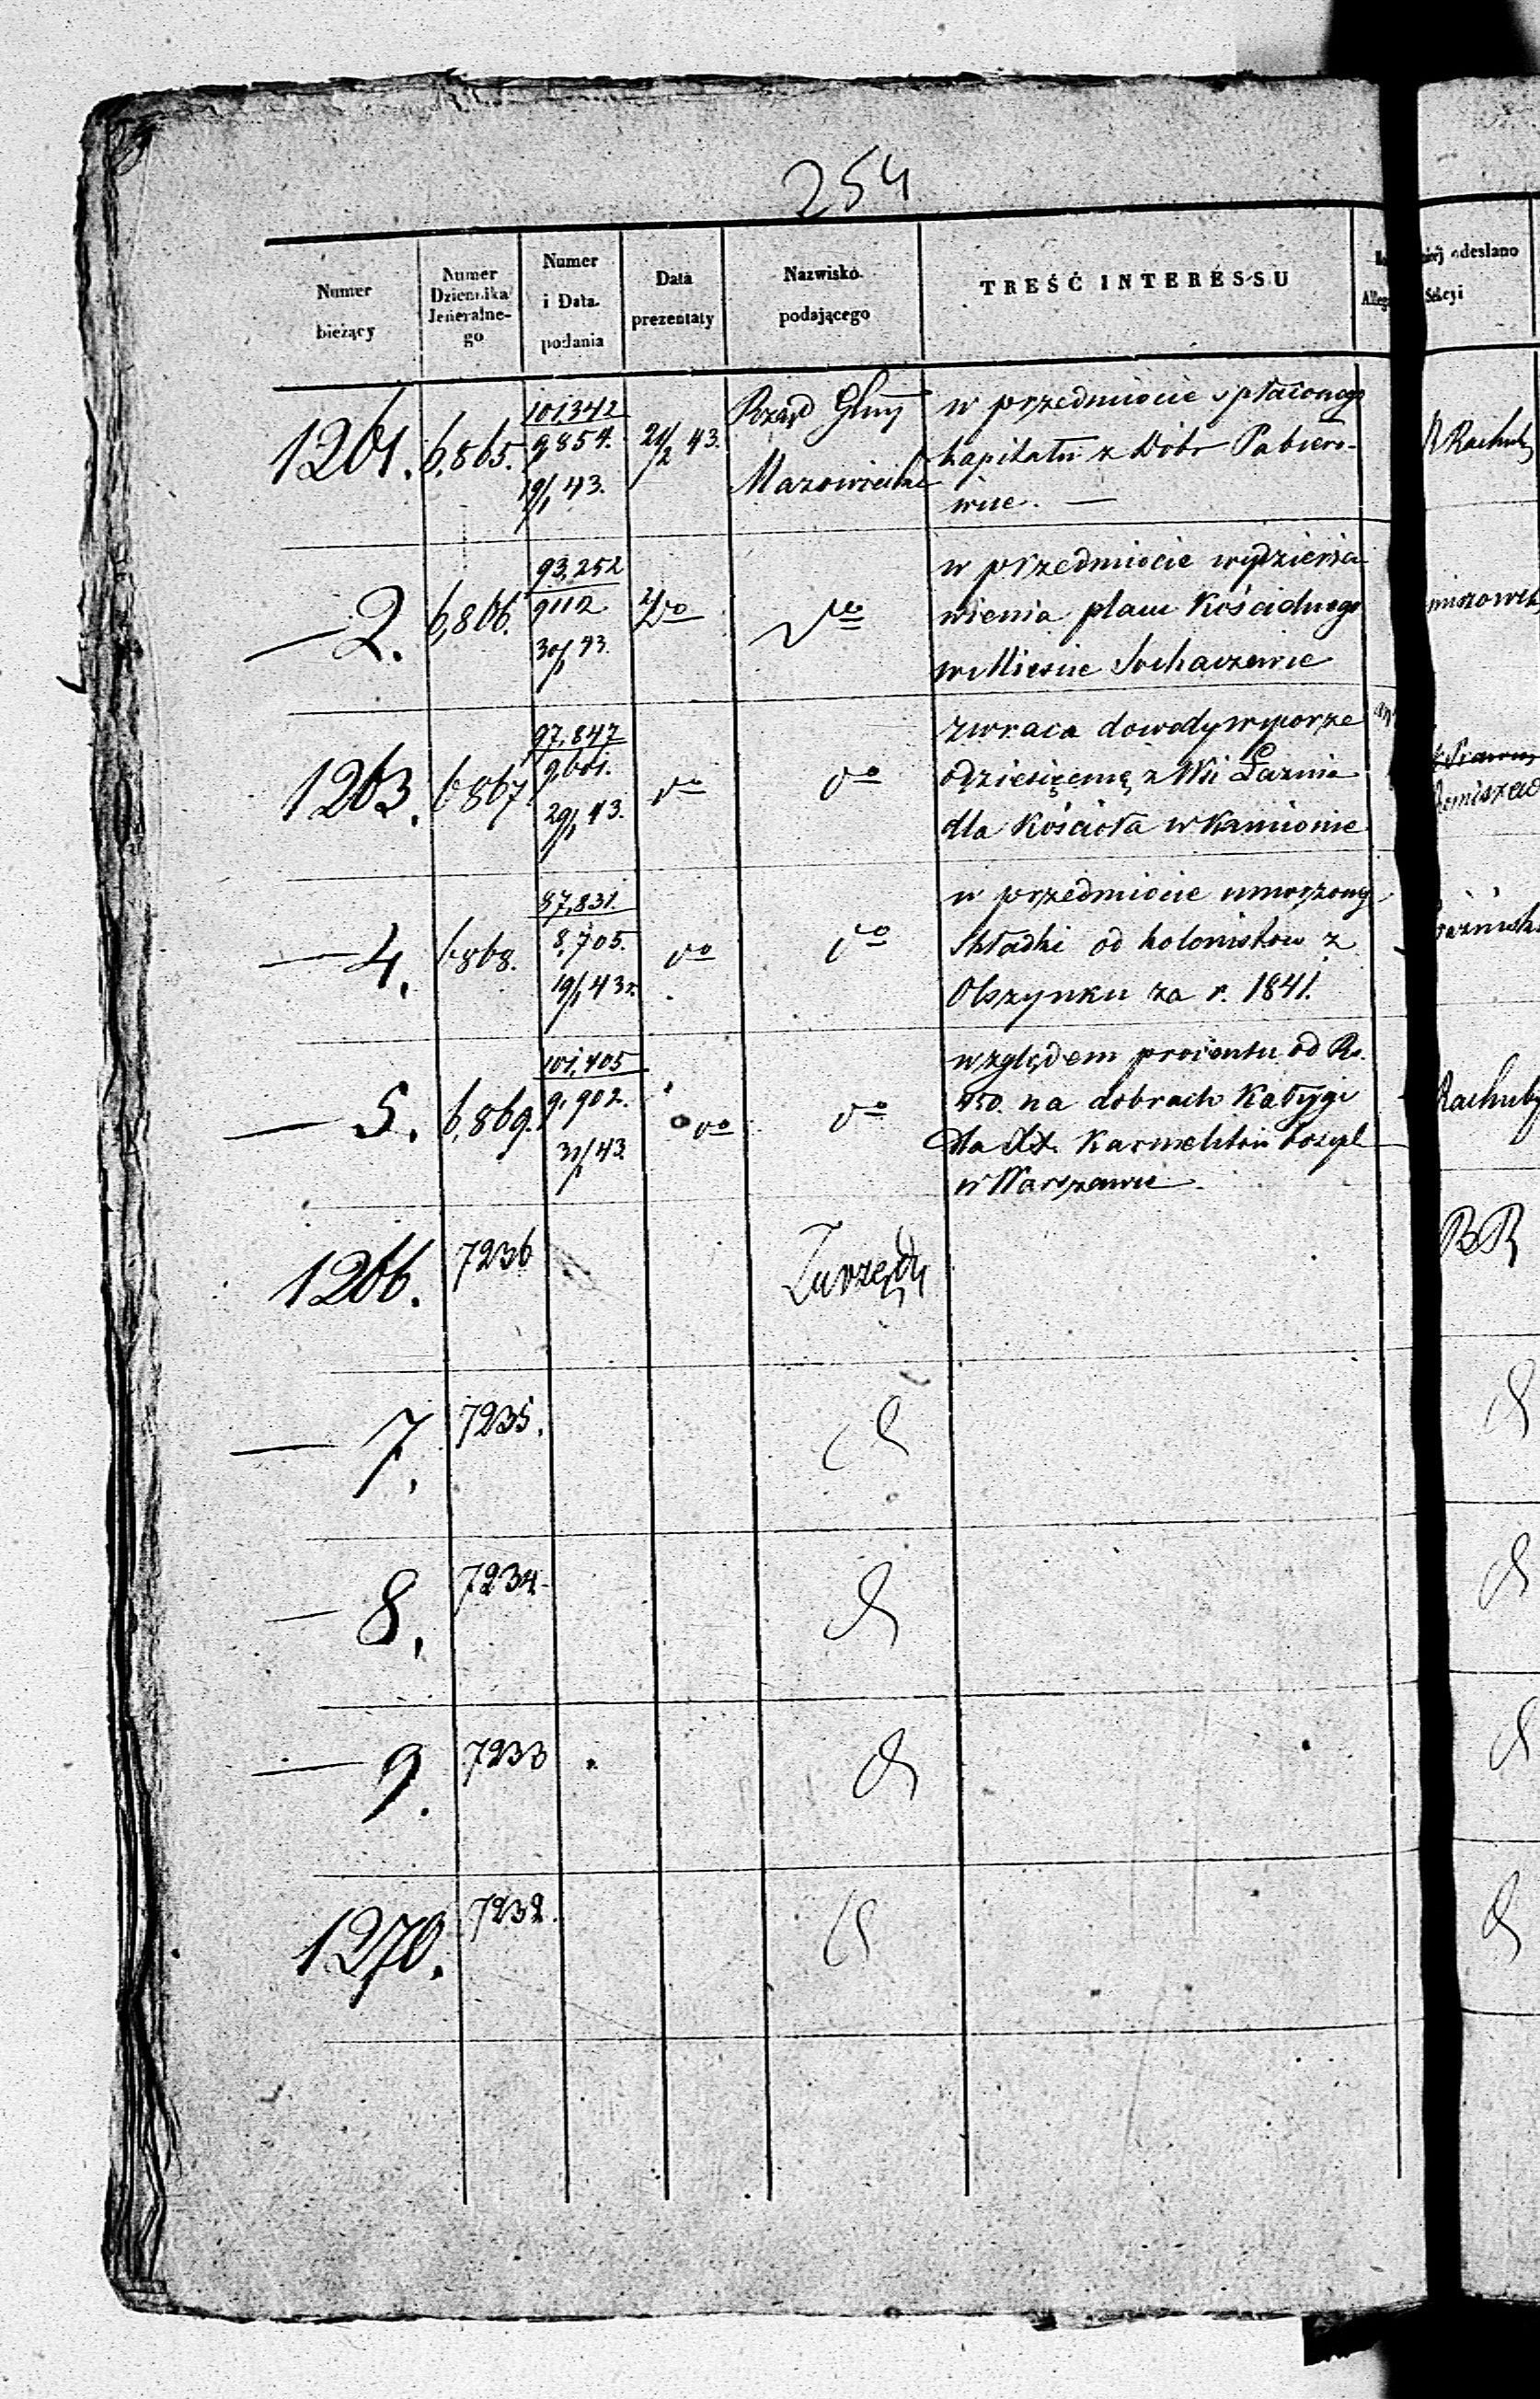 254
Numer
bieżący
Numer
Dziennika
Jeneralne-
go
Numer
i Data
podania
Data
prezentaty
Nazwisko
podającego
TREŚĆ INTERESSU
odesłano
Sekcyi
1261. 6,865. 101,342 9854. 19/1 43. 24/2 43. Rząd Gbny Mazowiecki
w przedmiocie spłaconego
kapitału z Dóbr Pabiero-
wice. —
— 2. 6,866. 93,252 9112 30/1 43. do do
w przedmiocie wydzierża
wienia placu Kościelnego
w Mieście Sochaczewie
1263. 6867 97,847 9,601. 29/1 43. do do
zwraca dowody w sporze
o dziesięcinę z Wsi Łaznia
dla Kościoła w Kamionie
— 4. 6868. 87,831. 8,705. 19/1 43 r. do do
w przedmiocie umorzonej
składki od kolonistów z
Olszynku za r. 1841.
— 5. 6,869. 101,405 9,902. 31/1 43. do do
względem procentu od Rs.
450. na dobrach Kałęgi
dla XX. Karmelitów bosych
w Warszawie.
Rachuby
1266. 7236 Zurzędu BR
— 7. 7235. d d
— 8. 7234 d d
— 9. 7233 d d
1270. 7232. d d